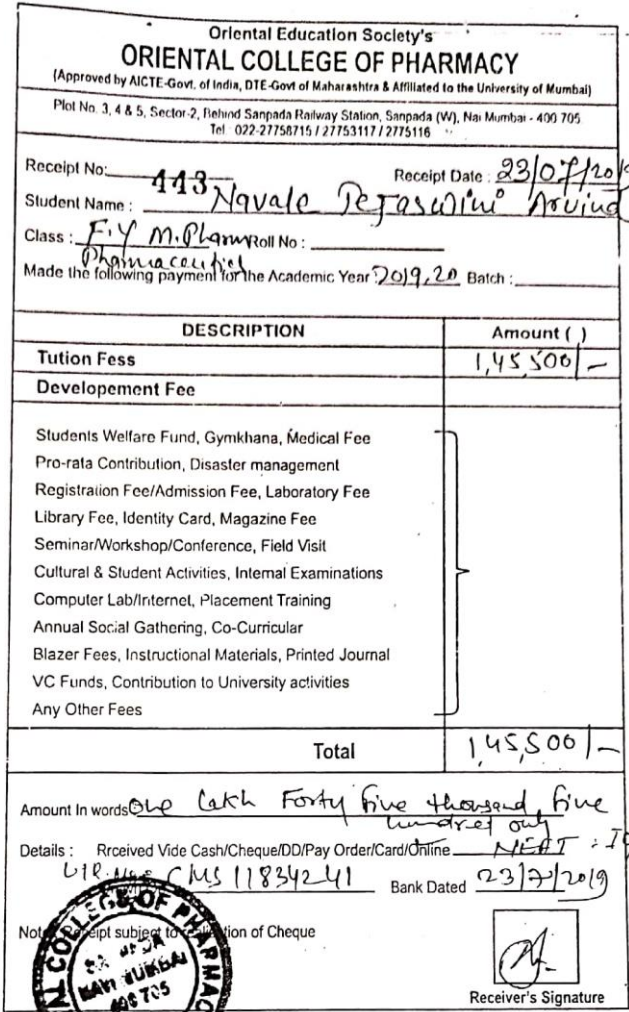 Oriental Education Society's
ORIENTAL COLLEGE OF PHARMACY
(Approved by AICTE-Govt. of India, DTE-Govt of Maharashtra & Affiliated to the University of Mumbai)
Plot No. 3, 4 & 5, Sector-2, Behind Sanpada Railway Station, Sanpada (W), Nai Mumbai - 400 705
Tel 022-27758715 / 27753117 / 2775116
Receipt No: 443 Receipt Date : 23/07/2019
Student Name : Navale Tejaswini Arvind
Class : F.Y M.Pharm Roll No :
Pharmaceutics
Made the following payment for the Academic Year 2019,20 Batch :
DESCRIPTION Amount ( )
Tution Fess 1,45,500/-
Developement Fee
Students Welfare Fund, Gymkhana, Medical Fee
Pro-rata Contribution, Disaster management
Registration Fee/Admission Fee, Laboratory Fee
Library Fee, Identity Card, Magazine Fee
Seminar/Workshop/Conference, Field Visit
Cultural & Student Activities, Internal Examinations
Computer Lab/Internet, Placement Training
Annual Social Gathering, Co-Curricular
Blazer Fees, Instructional Materials, Printed Journal
VC Funds, Contribution to University activities
Any Other Fees
Total 1,45,500/-
Amount In words One Lakh Forty five thousand, five
hundred only
Details : Rrceived Vide Cash/Cheque/DD/Pay Order/Card/Online NEFT :
CMS 11834241 Bank Dated 23/7/2019
Note: Receipt subject to of Cheque
COLLEGE OF
NAVI MUMBAI
400 705
Receiver's Signature